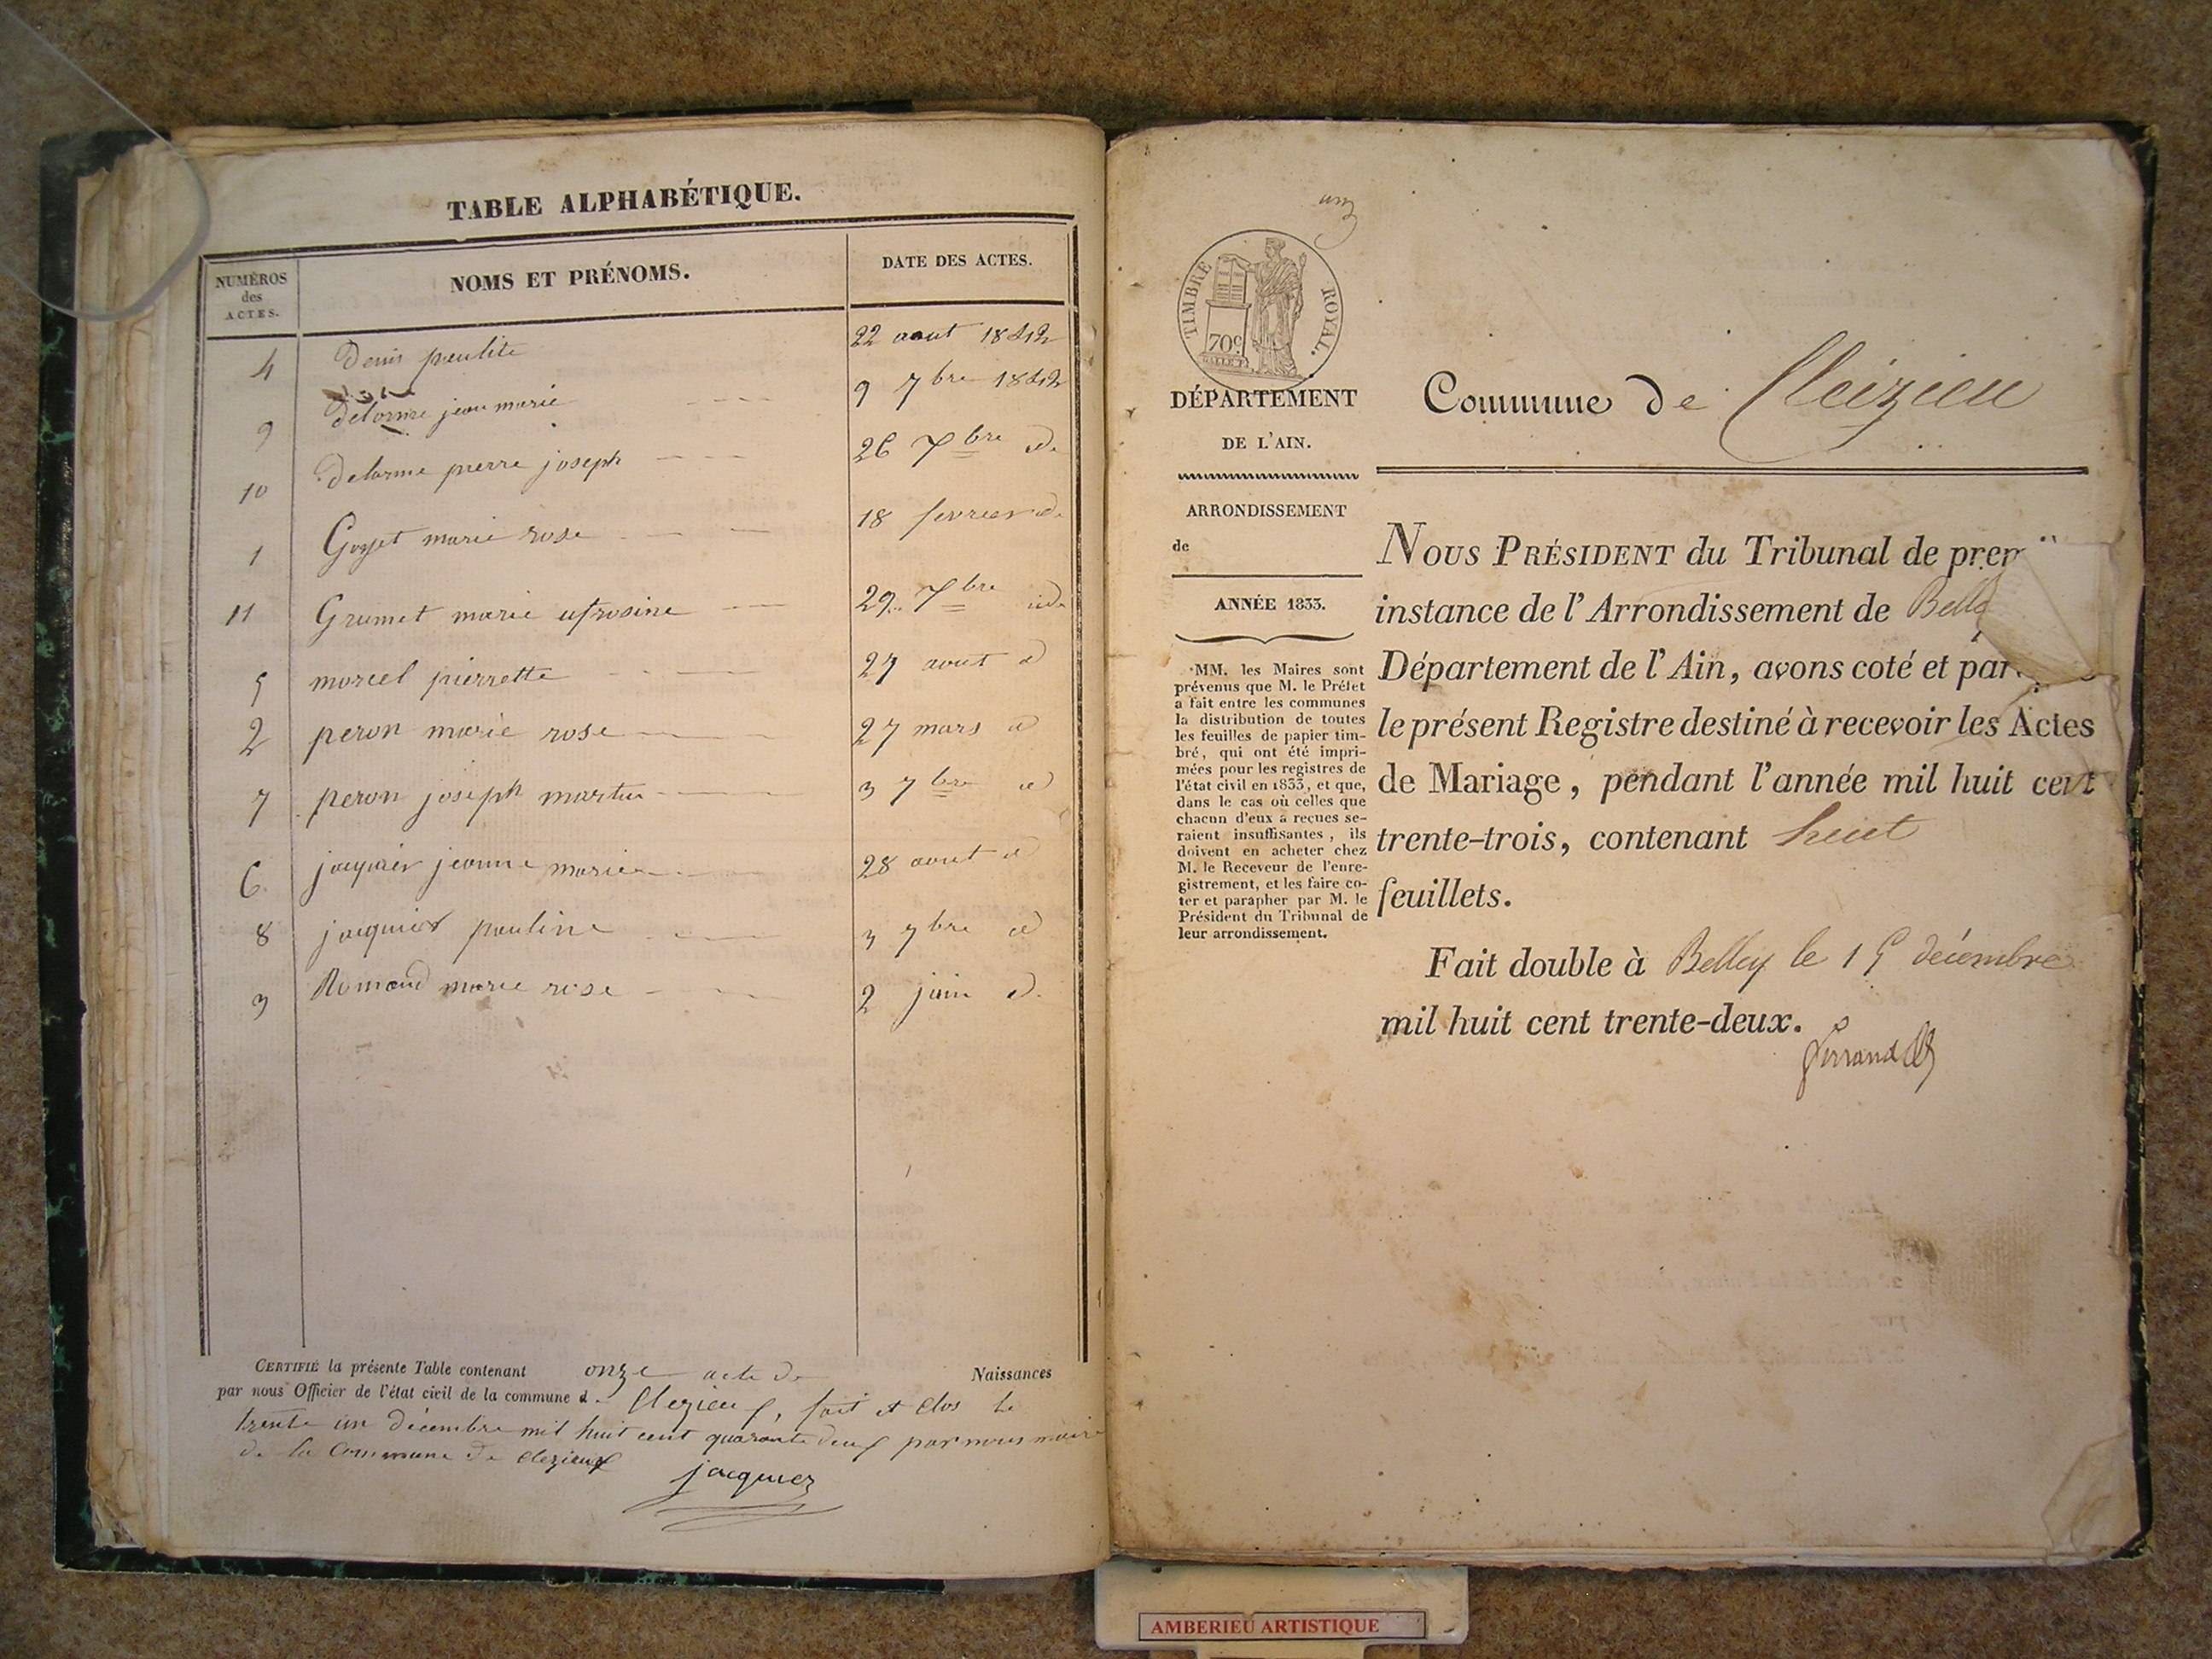 TABLE ALPHABÉTIQUE.
NUMÉROS des ACTES. NOMS ET PRÉNOMS. DATE DES ACTES.
4 Denis 22 aout 1842
9 delorme jean marie 9 7bre 1842
10 delorme pierre joseph 26 7bre id
1 Goyet marie rose 18 fevrier id
11 Grumet marie ufrosine 29 7bre id
5 morcel pierrette 27 aout id
2 peron marie rose 27 mars id
7 peron joseph martin 3 7bre id
6 jaquier jeanne marie 28 aout id
8 jacquier pauline 3 7bre id
3 Romand marie rose 2 juin id
CERTIFIÉ la présente Table contenant onze acte de Naissances
par nous Officier de l'état civil de la commune de Clezieux, fait et clos le
trente un décembre mil huit cent quarante deux par nous maire
de la Commune de clezieux
jacquier
TIMBRE ROYAL.
70c
DÉPARTEMENT
DE L'AIN.
ARRONDISSEMENT
de
ANNÉE 1833.
MM. les Maires sont
prévenus que M. le Préfet
a fait entre les communes
la distribution de toutes
les feuilles de papier tim-
bré, qui ont été impri-
mées pour les registres de
l'état civil en 1833, et que,
dans le cas où celles que
chacun d'eux a reçues se-
raient insuffisantes, ils
doivent en acheter chez
M. le Receveur de l'enre-
gistrement, et les faire co-
ter et parapher par M. le
Président du Tribunal de
leur arrondissement.
Commune de Cleizieu
NOUS PRÉSIDENT du Tribunal de prem
instance de l'Arrondissement de Belle
Département de l'Ain, avons coté et par
le présent Registre destiné à recevoir les Actes
de Mariage, pendant l'année mil huit cent
trente-trois, contenant huit
feuillets.
Fait double à Belley le 15 décembre
mil huit cent trente-deux.
Ferrand
AMBERIEU ARTISTIQUE